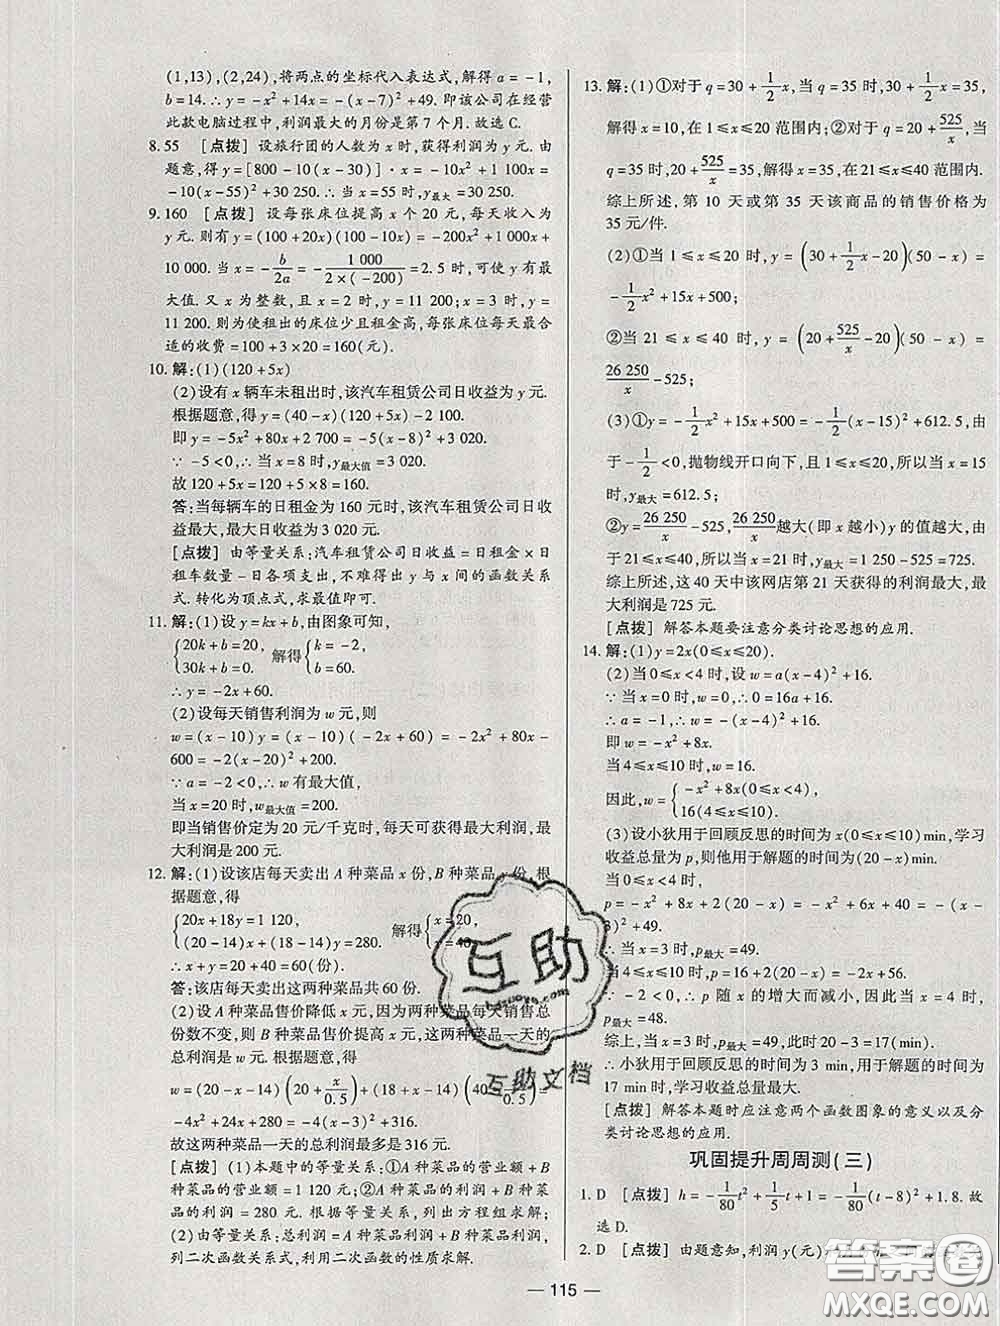 (1,13),(2,24),将两点的坐标代入表达式,解得 a=-1,
b=14.∴y=-x²+14x=-(x-7)²+49.即该公司在经营
此款电脑过程中,利润最大的月份是第 7 个月.故选 C.
8.55 [点拨] 设旅行团的人数为 x 时,获得利润为 y 元.由
题意,得 y=[800-10(x-30)]·x=-10x²+1 100x=
-10(x-55)²+30 250.∴当 x=55 时,y最大=30 250.
9.160 [点拨] 设每张床位提高 x 个 20 元,每天收入为
y元.则有 y=(100+20x)(100-10x)=-200x²+1 000x+
10 000.当 x=-b/2a=-1 000/(2×(-200))=2.5 时,可使 y 有最
大值.又 x 为整数,且 x=2 时,y=11 200;x=3 时,y=
11 200.则为使租出的床位少且租金高,每张床位每天最合
适的收费=100+3×20=160(元).
10.解:(1)(120+5x)
(2)设有 x 辆车未租出时,该汽车租赁公司日收益为 y 元.
根据题意,得 y=(40-x)(120+5x)-2 100.
即 y=-5x²+80x+2 700=-5(x-8)²+3 020.
∵-5<0,∴当 x=8 时,y最大值=3 020.
故 120+5x=120+5×8=160.
答:当每辆车的日租金为 160 元时,该汽车租赁公司日收
益最大,最大日收益为 3 020 元.
[点拨] 由等量关系:汽车租赁公司日收益=日租金×日
租车数量-日各项支出,不难得出 y 与 x 间的函数关系
式.转化为顶点式,求最值即可.
11.解:(1)设 y=kx+b,由图象可知,
{20k+b=20, 30k+b=0. 解得{k=-2, b=60.
∴y=-2x+60.
(2)设每天销售利润为 w 元,则
w=(x-10)y=(x-10)(-2x+60)=-2x²+80x-
600=-2(x-20)²+200.
∵a=-2<0,∴w 有最大值.
当 x=20 时,w最大值=200.
即当销售价定为 20 元/千克时,每天可获得最大利润,最
大利润是 200 元.
12.解:(1)设该店每天卖出 A 种菜品 x 份,B 种菜品 y 份.根
据题意,得
{20x+18y=1 120, (20-14)x+(18-14)y=280. 解得{x=20, y=40.
∴x+y=20+40=60(份).
答:该店每天卖出这两种菜品共 60 份.
(2)设 A 种菜品售价降低 x 元,因为两种菜品每天销售总
份数不变,则 B 种菜品售价提高 x 元,这两种菜品一天的
总利润是 w 元.根据题意,得
w=(20-x-14)(20+x/0.5)+(18+x-14)(40-x/0.5)=
-4x²+24x+280=-4(x-3)²+316.
故这两种菜品一天的总利润最多是 316 元.
[点拨] (1)本题中的等量关系:①A 种菜品的营业额+B
种菜品的营业额=1 120 元;②A 种菜品的利润+B 种菜
品的利润=280 元.根据等量关系,列出方程组求解.
(2)由等量关系:总利润=A 种菜品利润+B 种菜品利润,
列二次函数关系式,利用二次函数的性质求解.
13.解:(1)①对于 q=30+1/2x,当 q=35 时,30+1/2x=35,
解得 x=10,在 1≤x≤20 范围内;②对于 q=20+525/x,当
q=35时,20+525/x=35,解得 x=35,在 21≤x≤40 范围内.
综上所述,第 10 天或第 35 天该商品的销售价格为
35 元/件.
(2)①当 1≤x≤20 时,y=(30+1/2x-20)(50-x)=
-1/2x²+15x+500;
②当 21≤x≤40 时,y=(20+525/x-20)(50-x)=
26 250/x-525.
(3)①y=-1/2x²+15x+500=-1/2(x-15)²+612.5,由
于-1/2<0,抛物线开口向下,且 1≤x≤20,所以当 x=15
时,y最大=612.5;
②y=26 250/x-525,26 250/x越大(即 x 越小)y 的值越大,
由于 21≤x≤40,所以当 x=21 时,y最大=1 250-525=725.
综上所述,这 40 天中该网店第 21 天获得的利润最大,最
大利润是 725 元.
[点拨] 解答本题要注意分类讨论思想的应用.
14.解:(1)y=2x(0≤x≤20).
(2)当 0≤x<4 时,设 w=a(x-4)²+16.
∵当 x=0 时,w=0,∴0=16a+16.
∴a=-1,∴w=-(x-4)²+16.
即 w=-x²+8x.
当 4≤x≤10 时,w=16.
因此,w={-x²+8x(0≤x<4), 16(4≤x≤10).
(3)设小狄用于回顾反思的时间为 x(0≤x≤10)min,学习
收益总量为 p,则他用于解题的时间为(20-x)min.
当 0≤x<4 时,
p=-x²+8x+2(20-x)=-x²+6x+40=-(x-
3)²+49.
∴当 x=3 时,p最大=49.
当 4≤x≤10 时,p=16+2(20-x)=-2x+56.
∵-2<0,∴p 随 x 的增大而减小,因此当 x=4 时,
p最大=48.
综上,当 x=3 时,p最大=49,此时 20-x=17.
∴小狄用于回顾反思的时间为 3 min,用于解题的时间为
17 min时,学习收益总量最大.
[点拨] 解答本题时应注意两个函数图象的意义以及分
类讨论思想的应用.
巩固提升周周测(三)
1. D [点拨] h=-1/80t²+1/5t+1=-1/80(t-8)²+1.8.故
选 D.
2. D [点拨] 由题意知,利润 y(元)
— 115 —
互助
互助文档
答案圈
MXQE.COM